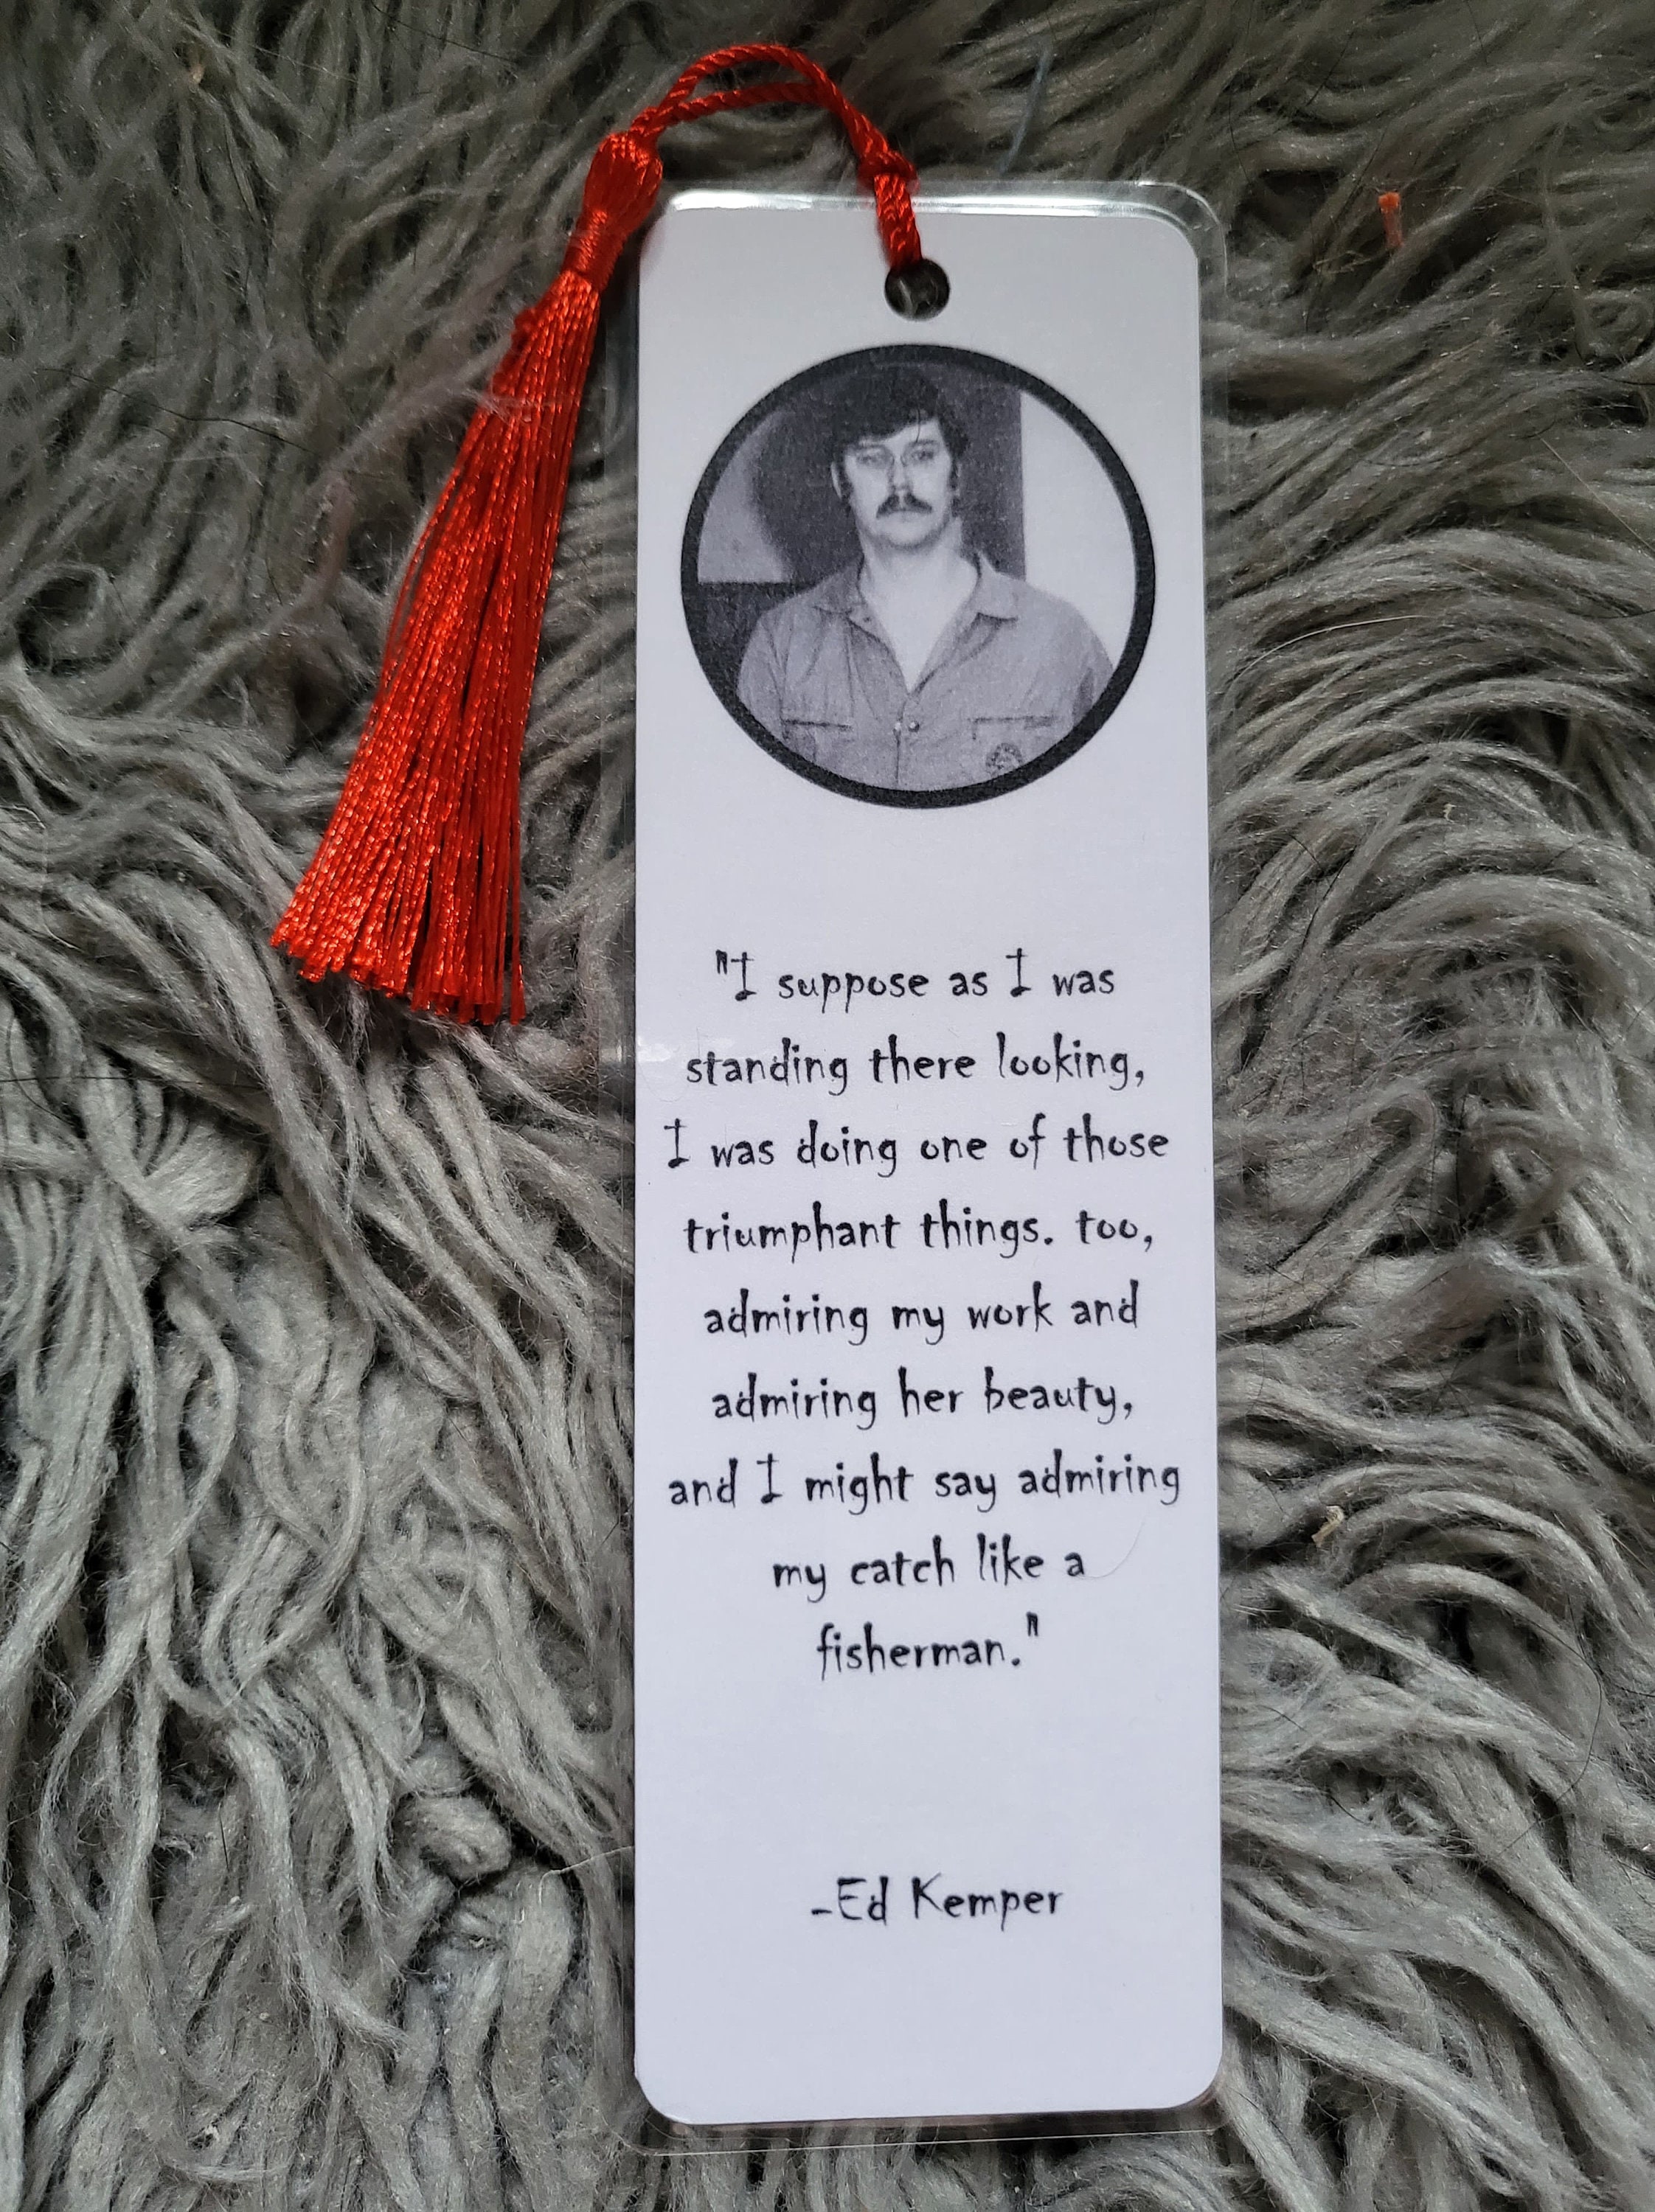 "I suppose as I was
standing there looking,
I was doing one of those
triumphant things. too,
admiring my work and
admiring her beauty,
and I might say admiring
my catch like a
fisherman."
-Ed Kemper